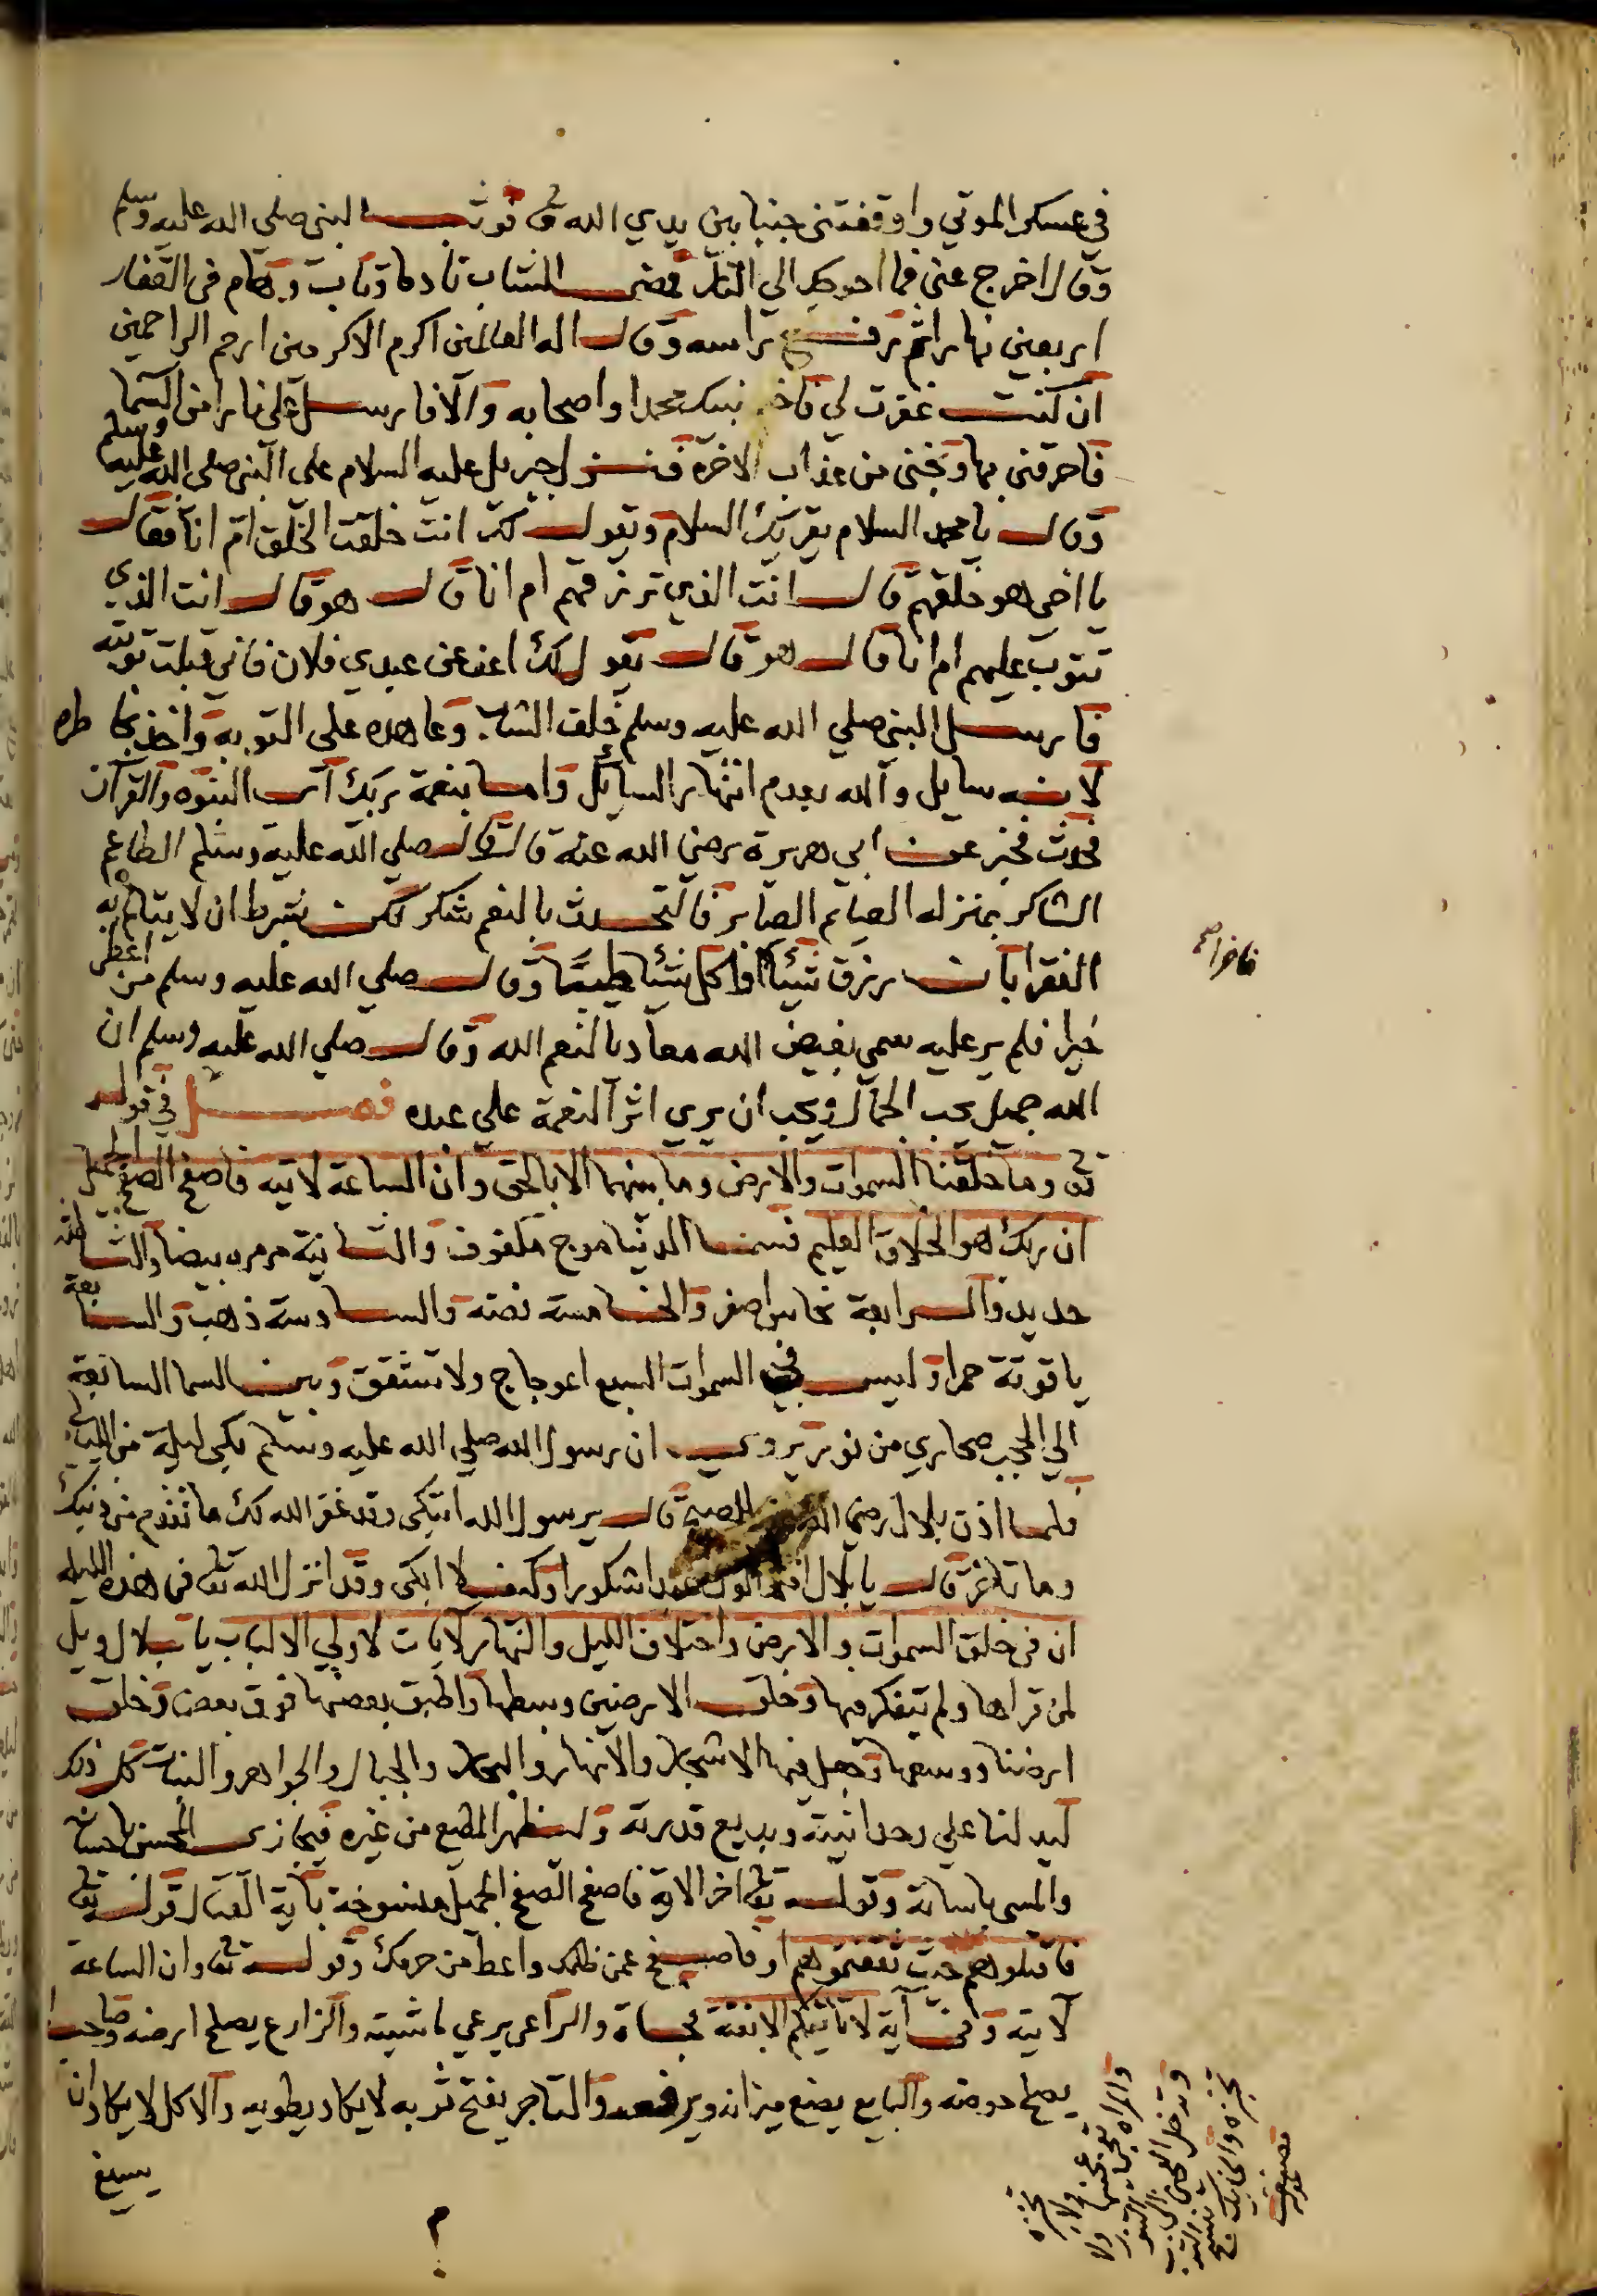 في عسكر الموتي واوقفتني جنبا بين يدي الله تع فوثب النبي صلي الله عليه وسلم
وقال اخرج عني فما احوجك الي النار فمضي الشاب نادما وتاب وهام في القفار
اربعين نهارا ثم رفع راسه وقال اله العالمين اكرم الاكرمين ارحم الراحمين
ان كنت غفرت لي فاخبر نبيك محمدا واصحابه والا فارسل علي نارا من السما
فاحرقني بها ونجني من عذاب الاخرة فنزل جبريل عليه السلام علي النبي صلي الله عليه وسلم
وقال يا محمد السلام يقريك السلام ويقول لك انت خلقت الخلق ام انا فقال
يا اخي هو خلقهم قال انت الذي ترزقهم ام انا قال هو قال انت الذي
تتوب عليهم ام انا قال هو قال يقول لك اعف عن عبدي فلان فاني قبلت توبته
فارسل النبي صلي الله عليه وسلم خلف الشاب وعاهده علي التوبة واخذ بخاطره
لانه سايل والله يعدم انتهار السائل واما بنعمة ربك اي النبوه والقرآن
فحدث فخبر عن ابي هريرة رضي الله عنه قال قال صلي الله عليه وسلم الطاعم
الشاكر بمنزله الصايم الصابر فالتحدث بالنعم شكر لكن بشرط ان لا يتالم به
الفقرا بان يرزق شيئا او اكل شيئا طيبا وقال صلي الله عليه وسلم من اعطي
خيرا فلم ير عليه سمي بغيض الله معاديا لنعم الله وقال صلي الله عليه وسلم ان
الله جميل يحب الجمال ويحب ان يري اثر النعمة علي عبده فصل في قوله
تع وما خلقنا السموات والارض وما بينهما الا بالحق وان الساعة لاتيه فاصفح الصفح الجميل
ان ربك هو الخلاق العليم فسما الدنيا موج مكفوف والثانية مرمره بيضا والثالثه
حديد والرابعة نحاس اصفر والخامسة فضه والسادسة ذهب والسابعة
ياقوتة حمرا وليس في السموات السبع اعوجاج ولا تشقق وبين السما السابعة
الي الحجب صحاري من نور يروي ان رسول الله صلي الله عليه وسلم بكي ليلة من الليالي
فلما اذن بلال رضي الله عنه للصبح قال يرسول الله اتبكي وقد غفر الله لك ما تقدم من ذنبك
وما تاخر قال يا بلال افلا اكون عبدا شكورا وكيف لا ابكي وقد انزل الله تع في هذه الليله
ان في خلق السموات والارض واختلاف الليل والنهار لايات لاولي الالباب يا بلال ويل
لمن قراها ولم يتفكر فيها وخلق الارضين وبسطها واطبق بعضها فوق بعض وخلق
ارضنا ووسعها وجعل فيها الاشجار والانهار والبحار والجبال والجواهر والنبات كل ذلك
ليدلنا علي وحدانيته وبديع قدرته وليظهر المطيع من غيره فيجازي المحسن باحسانه
والمسي باسائه وقوله تع اخر الاية فاصفح الصفح الجميل منسوخة بآية القتال قوله تع
فاقتلوهم حيث ثقفتموهم او فاصفح عمن ظلمك واعط من حرمك وقوله تع وان الساعة
لاتيه وفي آية لا تاتيكم الا بغتة فجاة والراعي يرعي ماشيته والزارع يصلح ارضه وصاحب
يصلح حوضه والبايع يضع ميزانه ويرفعه والتاجر يفتح ثوبه لا يكاد يطويه والاكل لا يكاد ان
يسيغ
فاخرا صح
والمراه تعجن عجينها ولا تخبزه